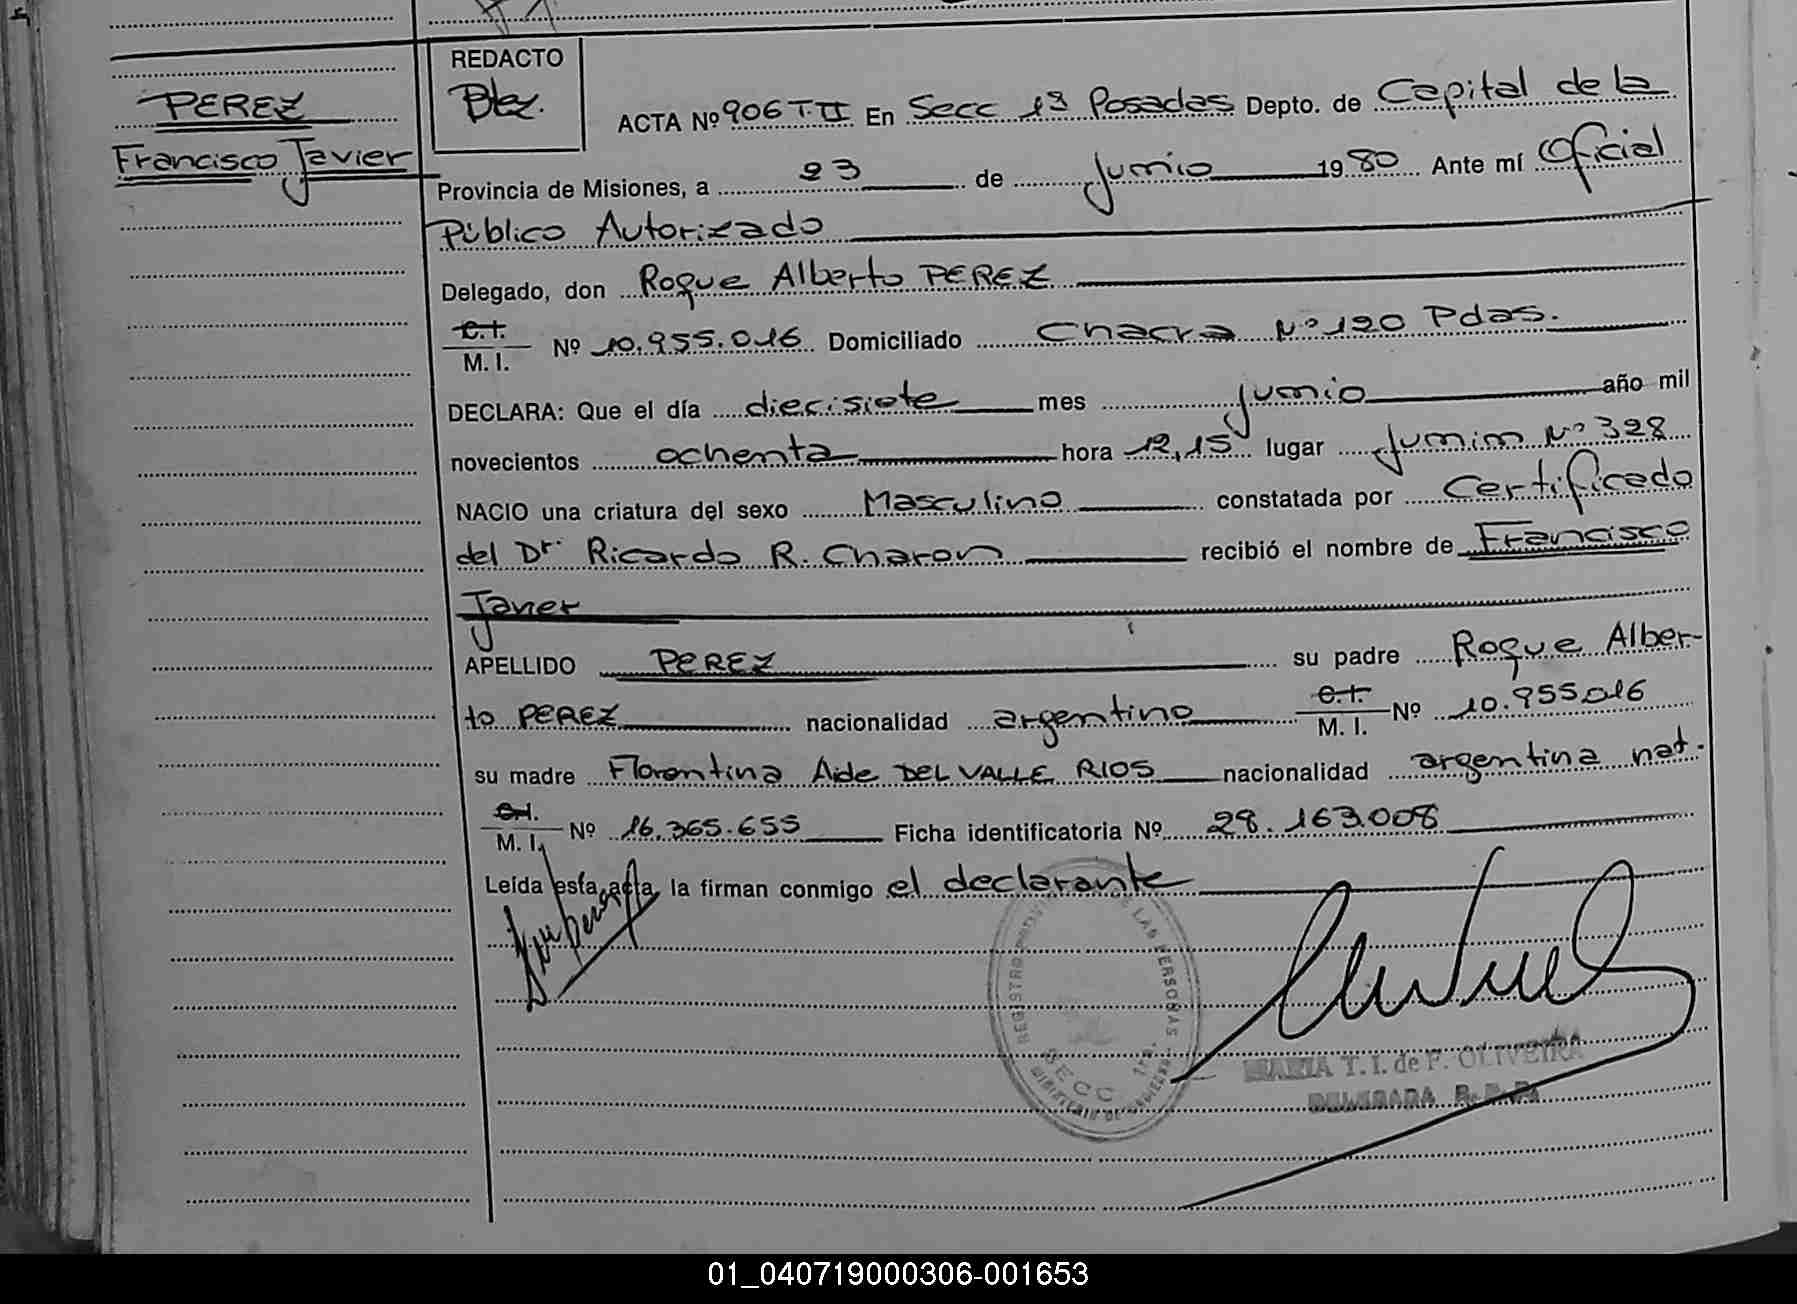 PEREZ
Francisco Javier
REDACTO
Blez.
ACTA Nº 906 T.II En Secc 1ª Posadas Depto. de Capital de la
Provincia de Misiones, a 23 de Junio 1980 Ante mí Oficial
Público Autorizado
Delegado, don Roque Alberto PEREZ
C.I.
M. I. Nº 10.955.016 Domiciliado Chacra Nº 120 Pdas.
DECLARA: Que el día diecisiete mes junio año mil
novecientos ochenta hora 12,15 lugar Junin Nº 328
NACIO una criatura del sexo Masculino constatada por Certificado
del Dr. Ricardo R. Charon recibió el nombre de Francisco
Javier
APELLIDO PEREZ su padre Roque Alber-
to PEREZ nacionalidad argentino C.I. M. I. Nº 10.955.016
su madre Florentina Aide DEL VALLE RIOS nacionalidad argentina nat.
C.I.
M. I. Nº 16.365.655 Ficha identificatoria Nº 28.163.008
Leída esta acta, la firman conmigo el declarante
REGISTRO PROV. DE LAS PERSONAS
SECC. 1ra.
MINISTERIO DE GOBIERNO
MARIA T. I. de F. OLIVEIRA
DELEGADA R. P. P.
01_040719000306-001653